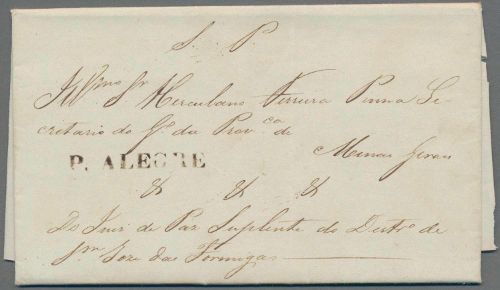 S. P.
Illmo Sr Herculano Ferreira Penna Se
cretario do Go da Provca de
Minas Geraes
P. ALEGRE
& & &
Do Juis de Paz Suplente do Destro de
Sm Joze das Formigas